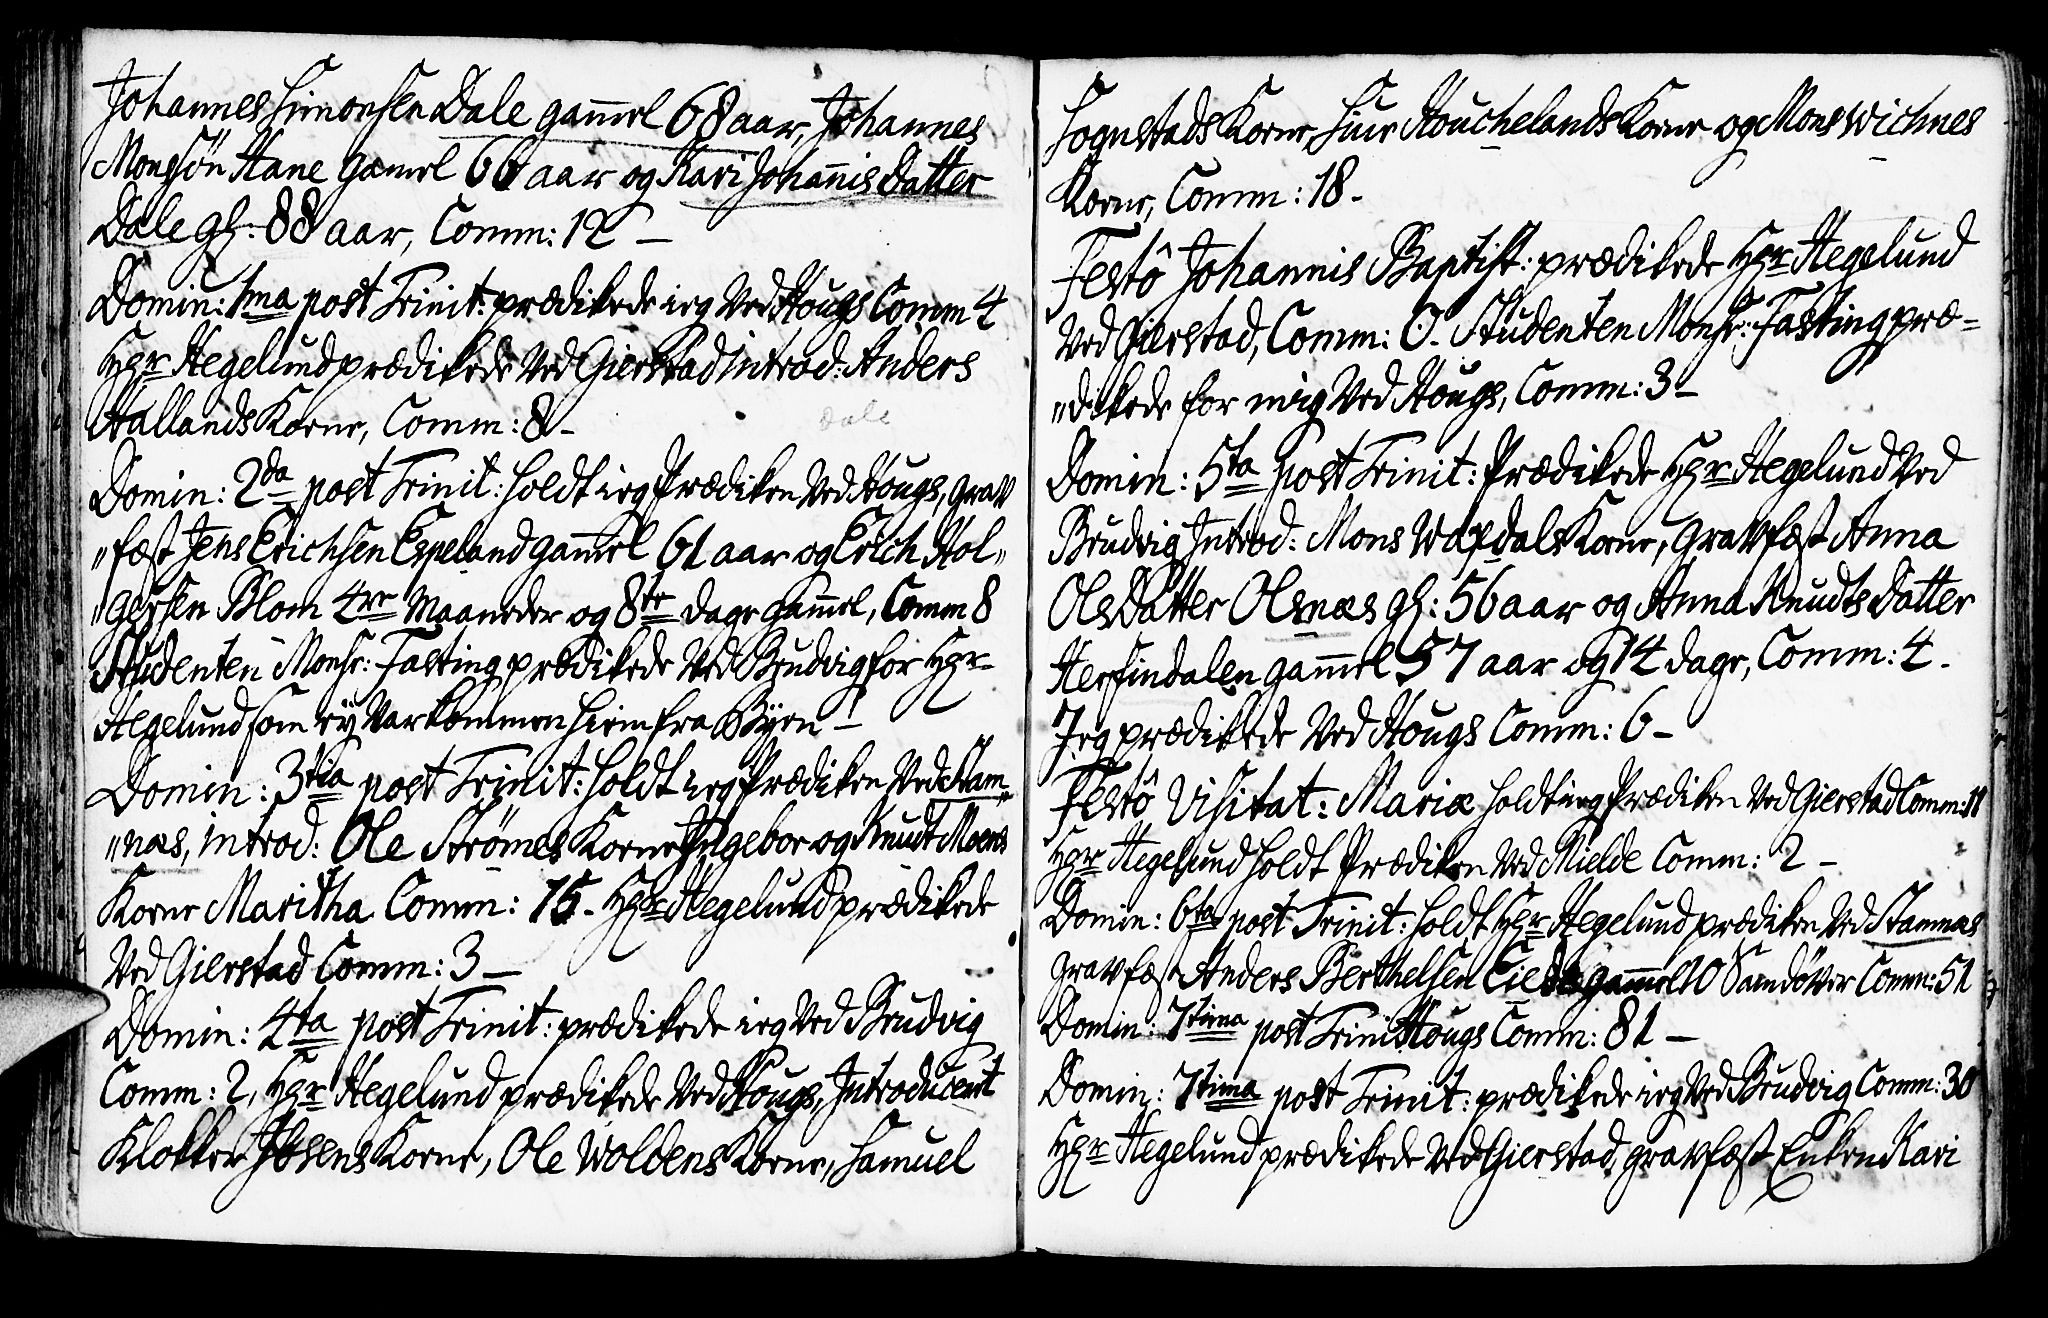 Johannes Simonsen Dale gam̅el 68 aar, Johannes
Monssön Hane gamel 66 aar og Kari Johan̅is Datter
Dale gl: 88 aar, Comm: 12 –
Domin: 1ma post Trinit: prædikede ieg Ved Hougs Comm 4
Hr Hegelund prædikede Ved Gierstad introd: Anders
Hallands Kone, Comm: 8 –
Dale
Domin: 2da post Trinit: holdt ieg Prædiken Ved Hougs, Grav
"fæst Jens Erichsen Espeland gam̅el 61 aar og Erich Hol"
"gersen Blom 4re Maaneder og 8te dage gam̅el, Comm 8
Studenten Monsr: Fasting prædikede Ved Brudvig for Hr
Hegelund som ey Var kommen hiem fra Byen –
Domin: 3tia post Trinit: holdt ieg Prædiken Ved Stam"
"næs, introd: Ole Strömes Kone Ingebor og Knudt Moens
Kone Maritha Comm: 15 – Hr Hegelund prædikede
Ved Gierstad Comm: 3 –
Domin: 4ta post Trinit: prædikede ieg Ved Brudvig
Comm: 2, Hr Hegelund prædikede Ved Hougs, Introducert
Klokker Ibsens Kone, Ole Woldens Kone, Samuel
Sognstads Kone, Siur Houchelands Kone og Mons Wichnes
Kone, Comm: 18 –
Festô Johannis Baptist: prædikede Hr Hegelund
Ved Gierstad, Comm: 0 – Studenten Monsr: Fasting præ=
"dikede for mig Ved Hougs, Comm: 3 –
Domin: 5ta post Trinit: Prædikede Hr Hegelund Ved
Brudvig Introd: Mons Waxdals Kone, Gravfæst Anna
Ols Datter Olsnæs gl: 56 aar og Anna Knudts Datter
Herfindalen gam̅el 57 aar og 14 dage, Comm: 4 –
Jeg prædikede Ved Hougs Comm: 6 –
Festô Visitat: Mariæ holdt ieg Prædiken Ved Gierstad Comm: 11
Hr Hegelund holdt Prædiken Ved Mielde Comm: 2 –
Domin: 6ta post Trinit: holdt Hr Hegelund prædiken Ved Stamnæs
gravfæst Anders Berthelsen Eide gam̅el 10 Samdöver Comm: 51
Domin: 7tima post Trinit Hougs Comm: 81 –
Domin: 7tima post Trinit: prædikede ieg Ved Brudvig Comm: 30
Hr Hegelund prædikede Ved Gierstad, gravfæst Enken Kari